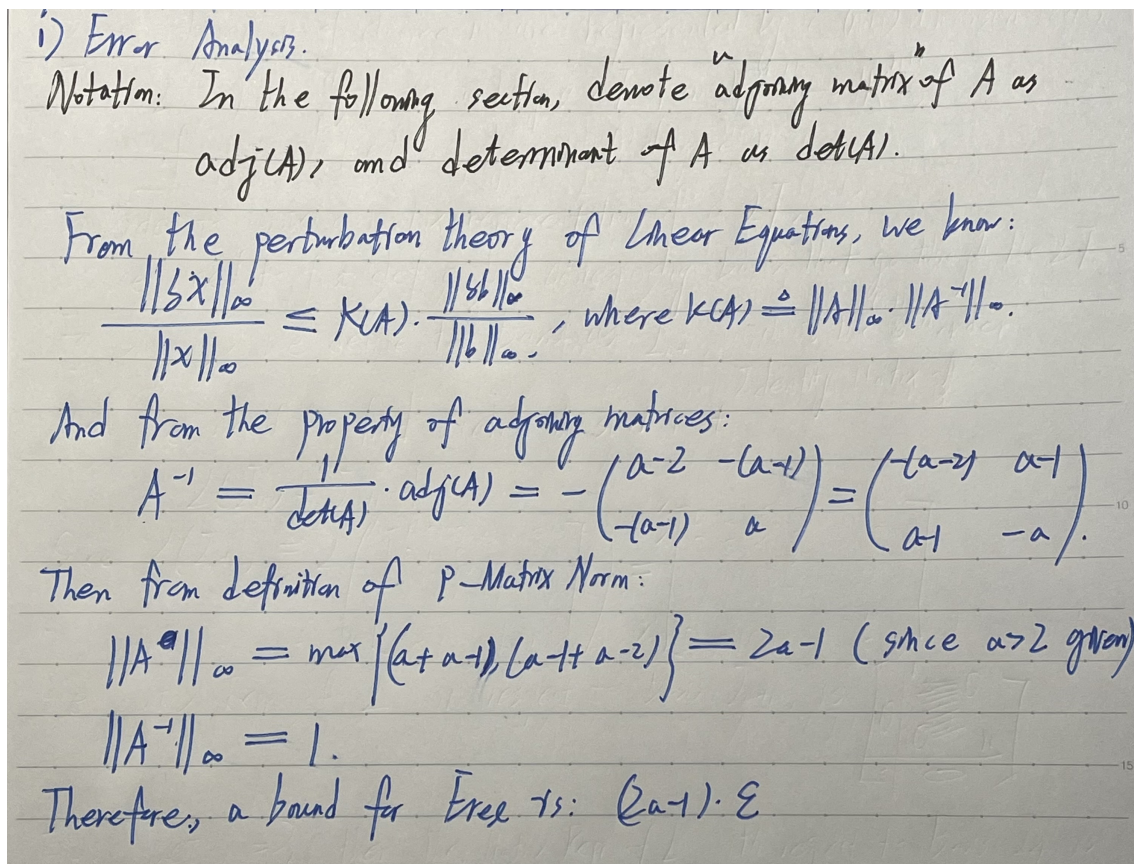 i) Error Analysis.
Notation: In the following section, denote "adjoining matrix" of A as
adj(A), and determinant of A as det(A).
From the perturbation theory of Linear Equations, we know:
||δx||∞ / ||x||∞ ≤ K(A) · ||δb||∞ / ||b||∞, where K(A) ≜ ||A||∞ · ||A⁻¹||∞.
And from the property of adjoining matrices:
A⁻¹ = 1/det(A) · adj(A) = -(a-2 -(a-1) ; -(a-1) a) = (-(a-2) a-1 ; a-1 -a).
Then from definition of P-Matrix Norm:
||A||∞ = max{(a+a-1), (a-1+a-2)} = 2a-1 (since a>2 given)
||A⁻¹||∞ = 1.
Therefore, a bound for Erel is: (2a-1)·ε
5
10
15